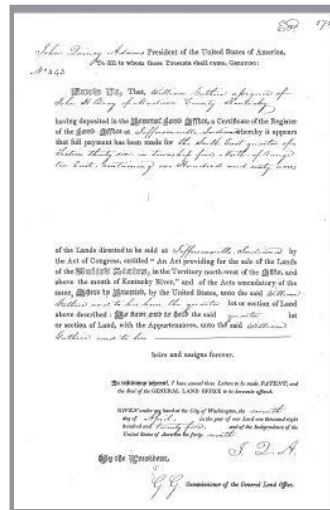 John Quincy Adams President of the United States of America,
To all to whom these Presents shall come, Greeting:
No 343
Know Ye, That, William Guthrie assignee of
John H Bay of Madison County Kentucky
having deposited in the General Land Office, a Certificate of the Register
of the Land Office at Jeffersonville Indiana whereby it appears
that full payment has been made for the South East quarter of
Section thirty six, in township five North, of Range
two East, containing one Hundred and sixty acres
of the Lands directed to be sold at Jeffersonville, Indiana by
the Act of Congress, entitled "An Act providing for the sale of the Lands
of the United States, in the Territory north-west of the Ohio, and
above the mouth of Kentucky River," and of the Acts amendatory of the
same, There is Granted, by the United States, unto the said William
Guthrie and to his heirs the quarter lot or section of Land
above described: To have and to hold the said quarter lot
or section of Land, with the Appurtenances, unto the said William
Guthrie and to his
heirs and assigns forever.
In testimony whereof, I have caused these Letters to be made PATENT, and
the Seal of the GENERAL LAND OFFICE to be hereunto affixed.
GIVEN under my hand at the City of Washington, the seventh
day of April, in the year of our Lord one thousand eight
hundred and twenty five and of the Independence of the
United States of America the forty ninth
By the President, J. Q. A.
G G Commissioner of the General Land Office.